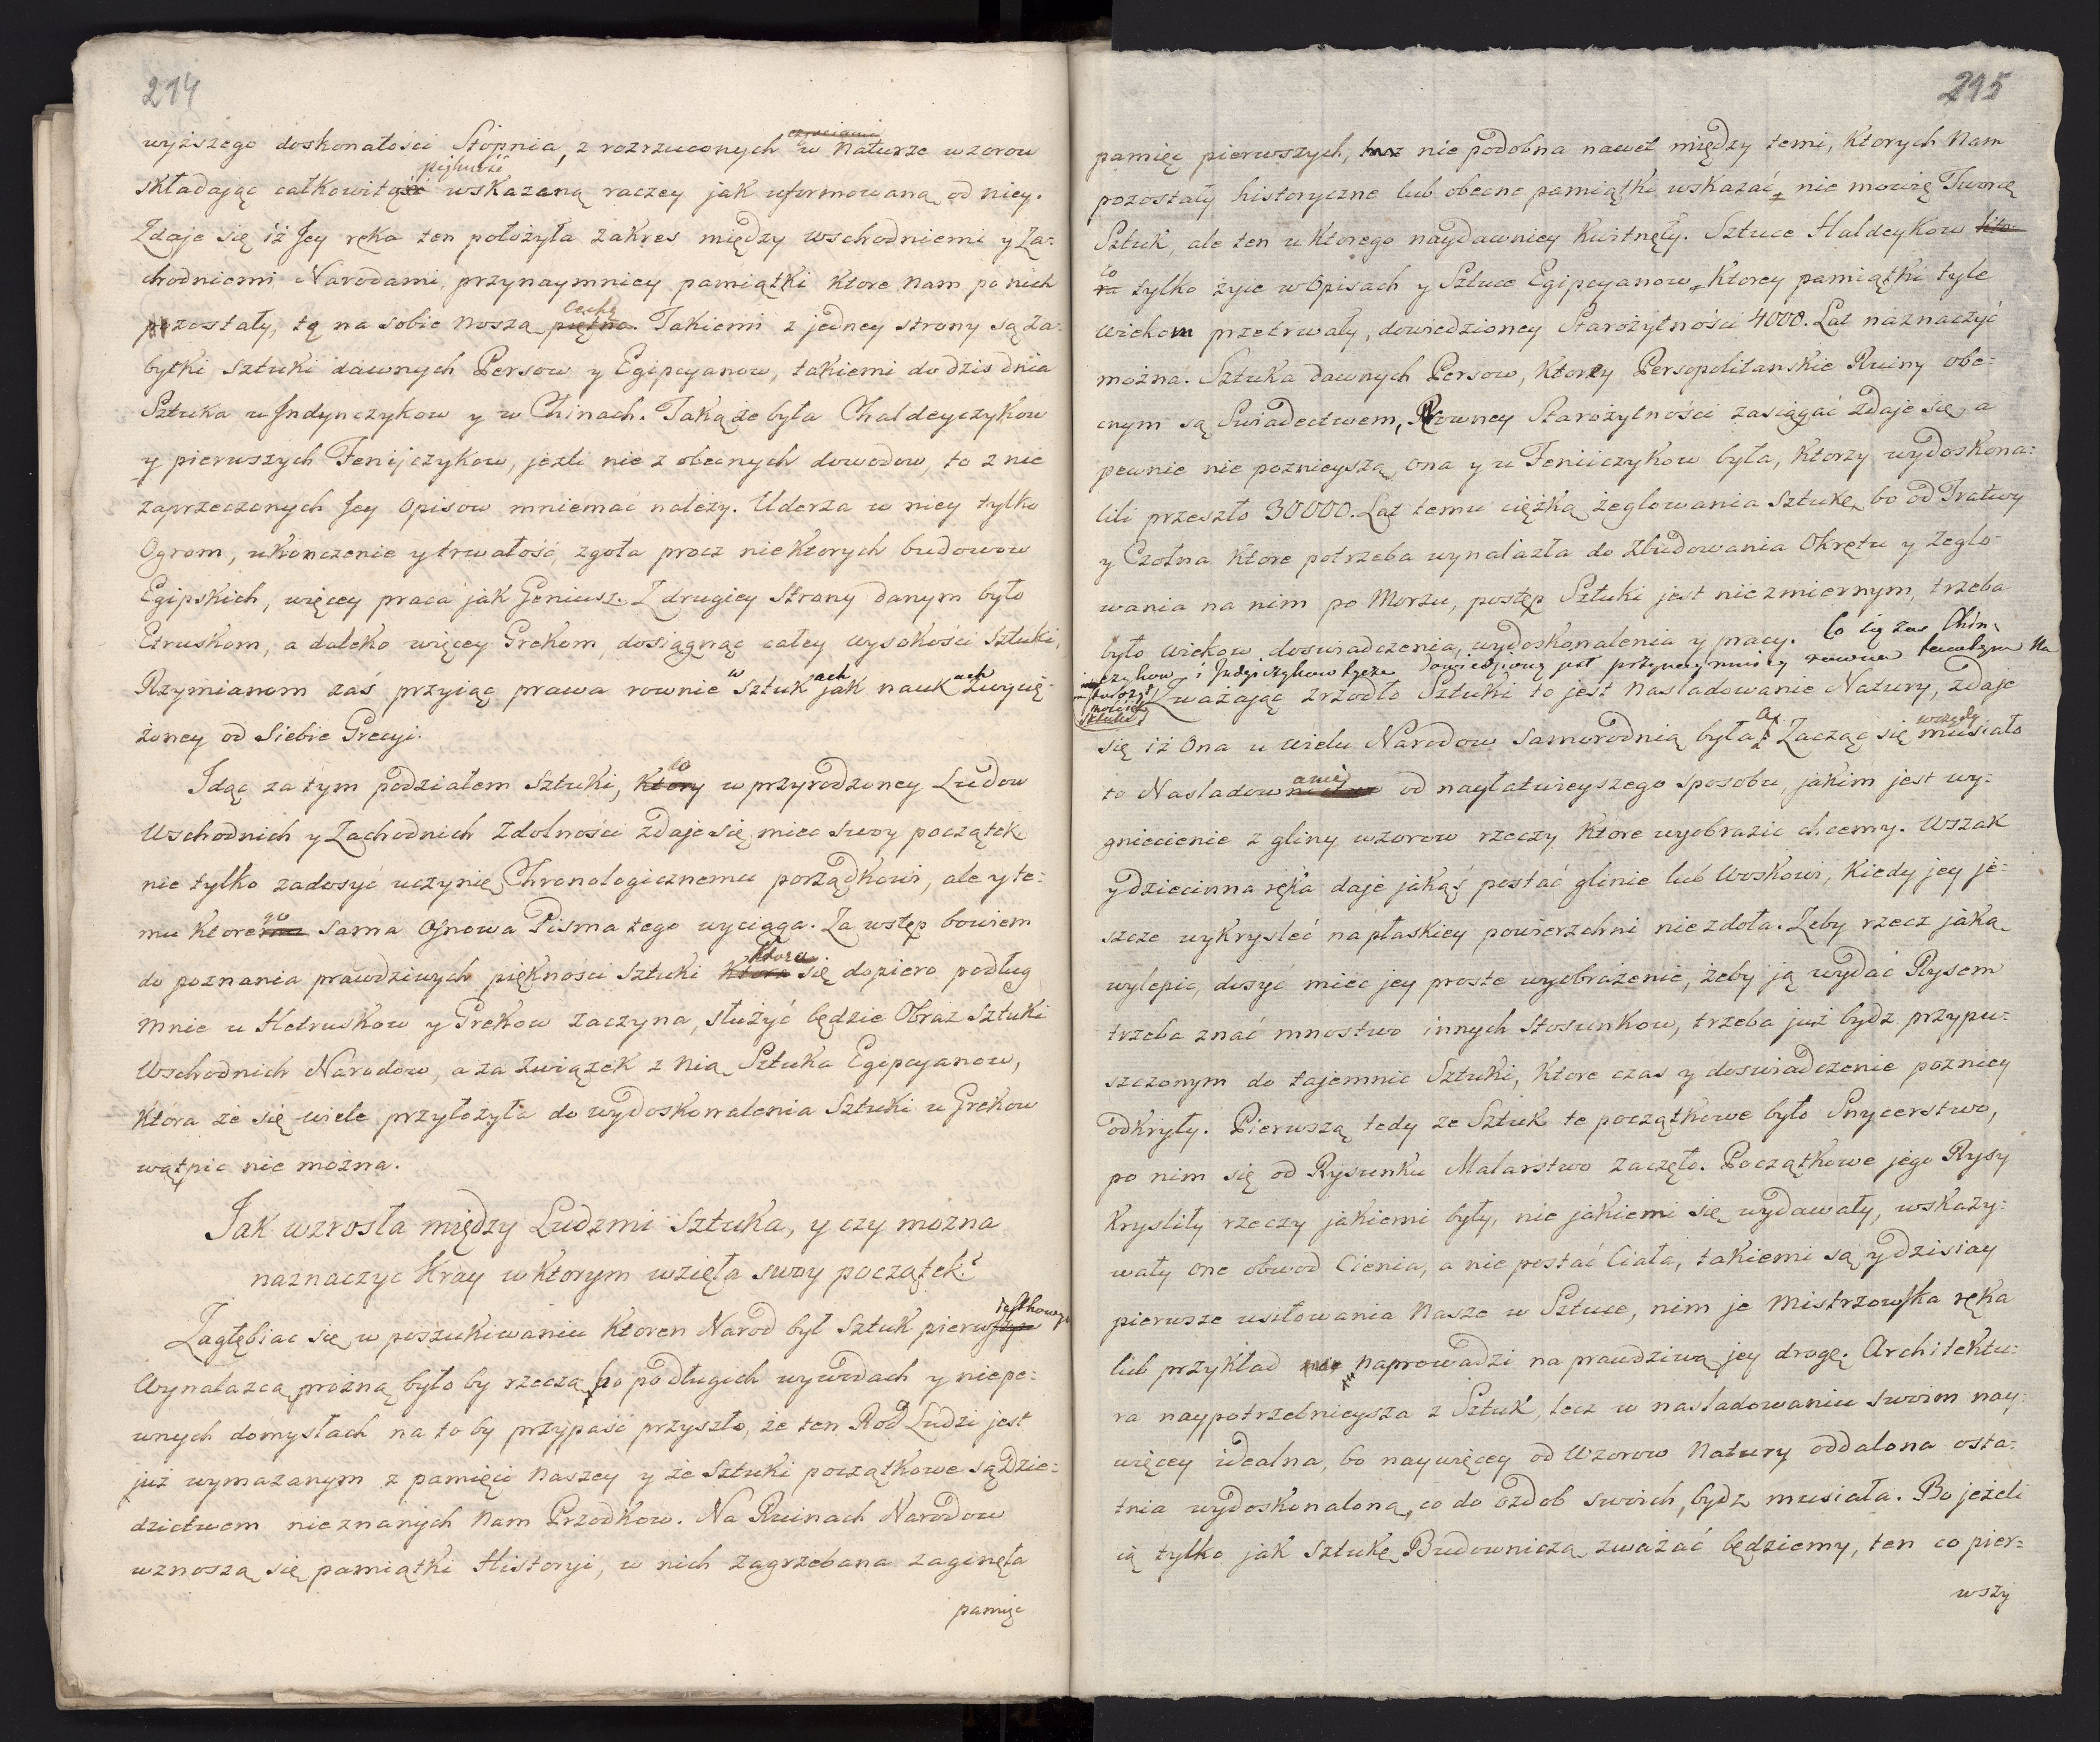 214
wyższego doskonałości Stopnia, z rozrzuconych w naturze wzorow
piękność
składając całkowitą wskazaną raczey jak uformowaną od niey.
Zdaje się iż Jey ręka ten położyła zakres między wschodniemi y Za-
chodniemi Narodami, przynaymniey pamiątki ktore nam po nich
cechę
pozostały, tę na sobie noszą piętno. Takiemi z jedney strony są Za-
bytki sztuki dawnych Persow y Egipcyanow, takiemi do dzis dnia
Sztuka u Indyyczykow y w Chinach. Takąże była Chaldeyczykow
y pierwszych Fenijczykow, jeżli nie z obecnych dowodow, to z nie
zaprzeczonych Jey opisow mniemać należy. Uderza w niey tylko
Ogrom, ukonczenie y trwałość, zgoła procz niektorych budowow
Egipskich, więcey praca jak Geniusz. Z drugiey Strony danym było
Etruskom, a daleko więcey Grekom, dosiągnąć całey wysokości Sztuki,
Rzymianom zaś przyiąć prawa rownie w Sztukach jak naukach zwycię-
żoney od siebie Grecyi.
Idąc za tym podziałem Sztuki, co ktory w przyrodzoney Ludow
Wschodnich y Zachodnich Zdolności zdaje się miec swoy początek
nie tylko zadosyć uczynię Chronologicznemu porządkowi, ale y te-
mu ktorego sama Osnowa Pisma tego wyciąga. Za wstęp bowiem
ktora
do poznania prawdziwych piękności Sztuki ktora się dopiero podług
mnie u Hetruskow y Grekow zaczyna, służyć będzie Obraz Sztuki
Wschodnich Narodow, a za związek z nią Sztuka Egipcyanow,
Ktora że się wiele przyłożyła do wydoskonalenia Sztuki u Grekow
wątpic nie można.
Jak wzrosła między Ludzmi Sztuka, y czy można
naznaczyc Kray w ktorym wzięła swoy początek?
Zagłębiac się w poszukiwaniu Ktoren Narod był Sztuk pierw
Wynalazcą prożną było by rzeczą bo po długich wywodach y niepe-
wnych domysłach na to by przypaść przyszło, że ten Rod Ludzi jest
już wymazanym z pamięci naszey y że Sztuki początkowe są Dzie-
dzictwem nieznanych nam Przodkow. Na Ruinach Narodow
wznoszą się pamiątki Historyi, w nich zagrzebana zaginęła
pamięc
215
pamięc pierwszych, nie podobna nawet między temi, Ktorych Nam
pozostały historyczne lub obecne pamiątki wskazać, nie mowię Tworcę
Sztuk, ale ten u Ktorego naydawniey Kwitnęły. Sztuce Haldeykow kto-
co
ra tylko żyie w opisach y Sztuce Egipcyanow, Ktorey pamiątki tyle
wiekom przetrwały, dowiedzioney Starożytności 4000. Lat naznaczyć
można. Sztuka dawnych Persow, Ktorey Persepolitanskie Ruiny obe-
cnym są Świadectwem, Rowney Starożytności zasiągać zdaje się, a
pewnie nie poznieyszą ona y u Feniiczykow była, Ktorzy wydoskona-
lili przeszło 30000. Lat temu ciężką żeglowania Sztukę, bo od Tratwy
y Czołna Ktore potrzeba wynalazła do Zbudowania Okrętu y żeglo-
wania na nim po Morzu, postęp Sztuki jest niezmiernym, trzeba
było wiekow doswiadczenia, wydoskonalenia y pracy. Co się zas Chin-
czykow i Indyiczykow tycze dowiedzioną jest przynaymniey rowna tamtym
mowię
Sztuki
Uważając zrzodło Sztuki to jest Nasladowanie Natury, zdaje
się iż Ona u wielu Narodow Samorodnią była. Zacząc się wszędy musiało
to Nasladowanie od nayłatwieyszego sposobu, jakim jest wy-
gniecienie z gliny wzorow rzeczy Ktore wyobrazic chcemy. Wszak
y dziecinna ręka daje jakąś postać glinie lub Woskowi, Kiedy jey je-
szcze wykryslić na płaskiey powierzchni nie zdoła. Żeby rzecz jaką
wylepic, dosyć miec jey proste wyobrażenie, żeby ją wydać Rysem
trzeba znać mnostwo innych Stosunkow, trzeba już bydz przypu-
szczonym do tajemnic Sztuki, Ktore czas y doswiadczenie pozniey
odkryły. Pierwszą tedy ze Sztuk te początkowe było Snycerstwo,
po nim się od Rysunku Malarstwo zaczęło. Początkowe jego Rysy
Krysliły rzeczy jakiemi były, nie jakiemi się wydawały, wskazy-
wały one obwod Cienia, a nie postać Ciała, takiemi są y dzisiay
pierwsze usiłowania Nasze w Sztuce, nim je Mistrzowska ręka
lub przykład naprowadzi na prawdziwą jey drogę. Architektu-
ra naypotrzebnieysza z Sztuk, lecz w nasladowaniu swoim nay-
więcey idealna, bo naywięcey od Wzorow Natury oddalona osta-
tnia wydoskonaloną, co do ozdob swoich, bydz musiała. Bo jeżeli
ią tylko jak Sztukę Budowniczą zważać będziemy, ten co pier-
wszy